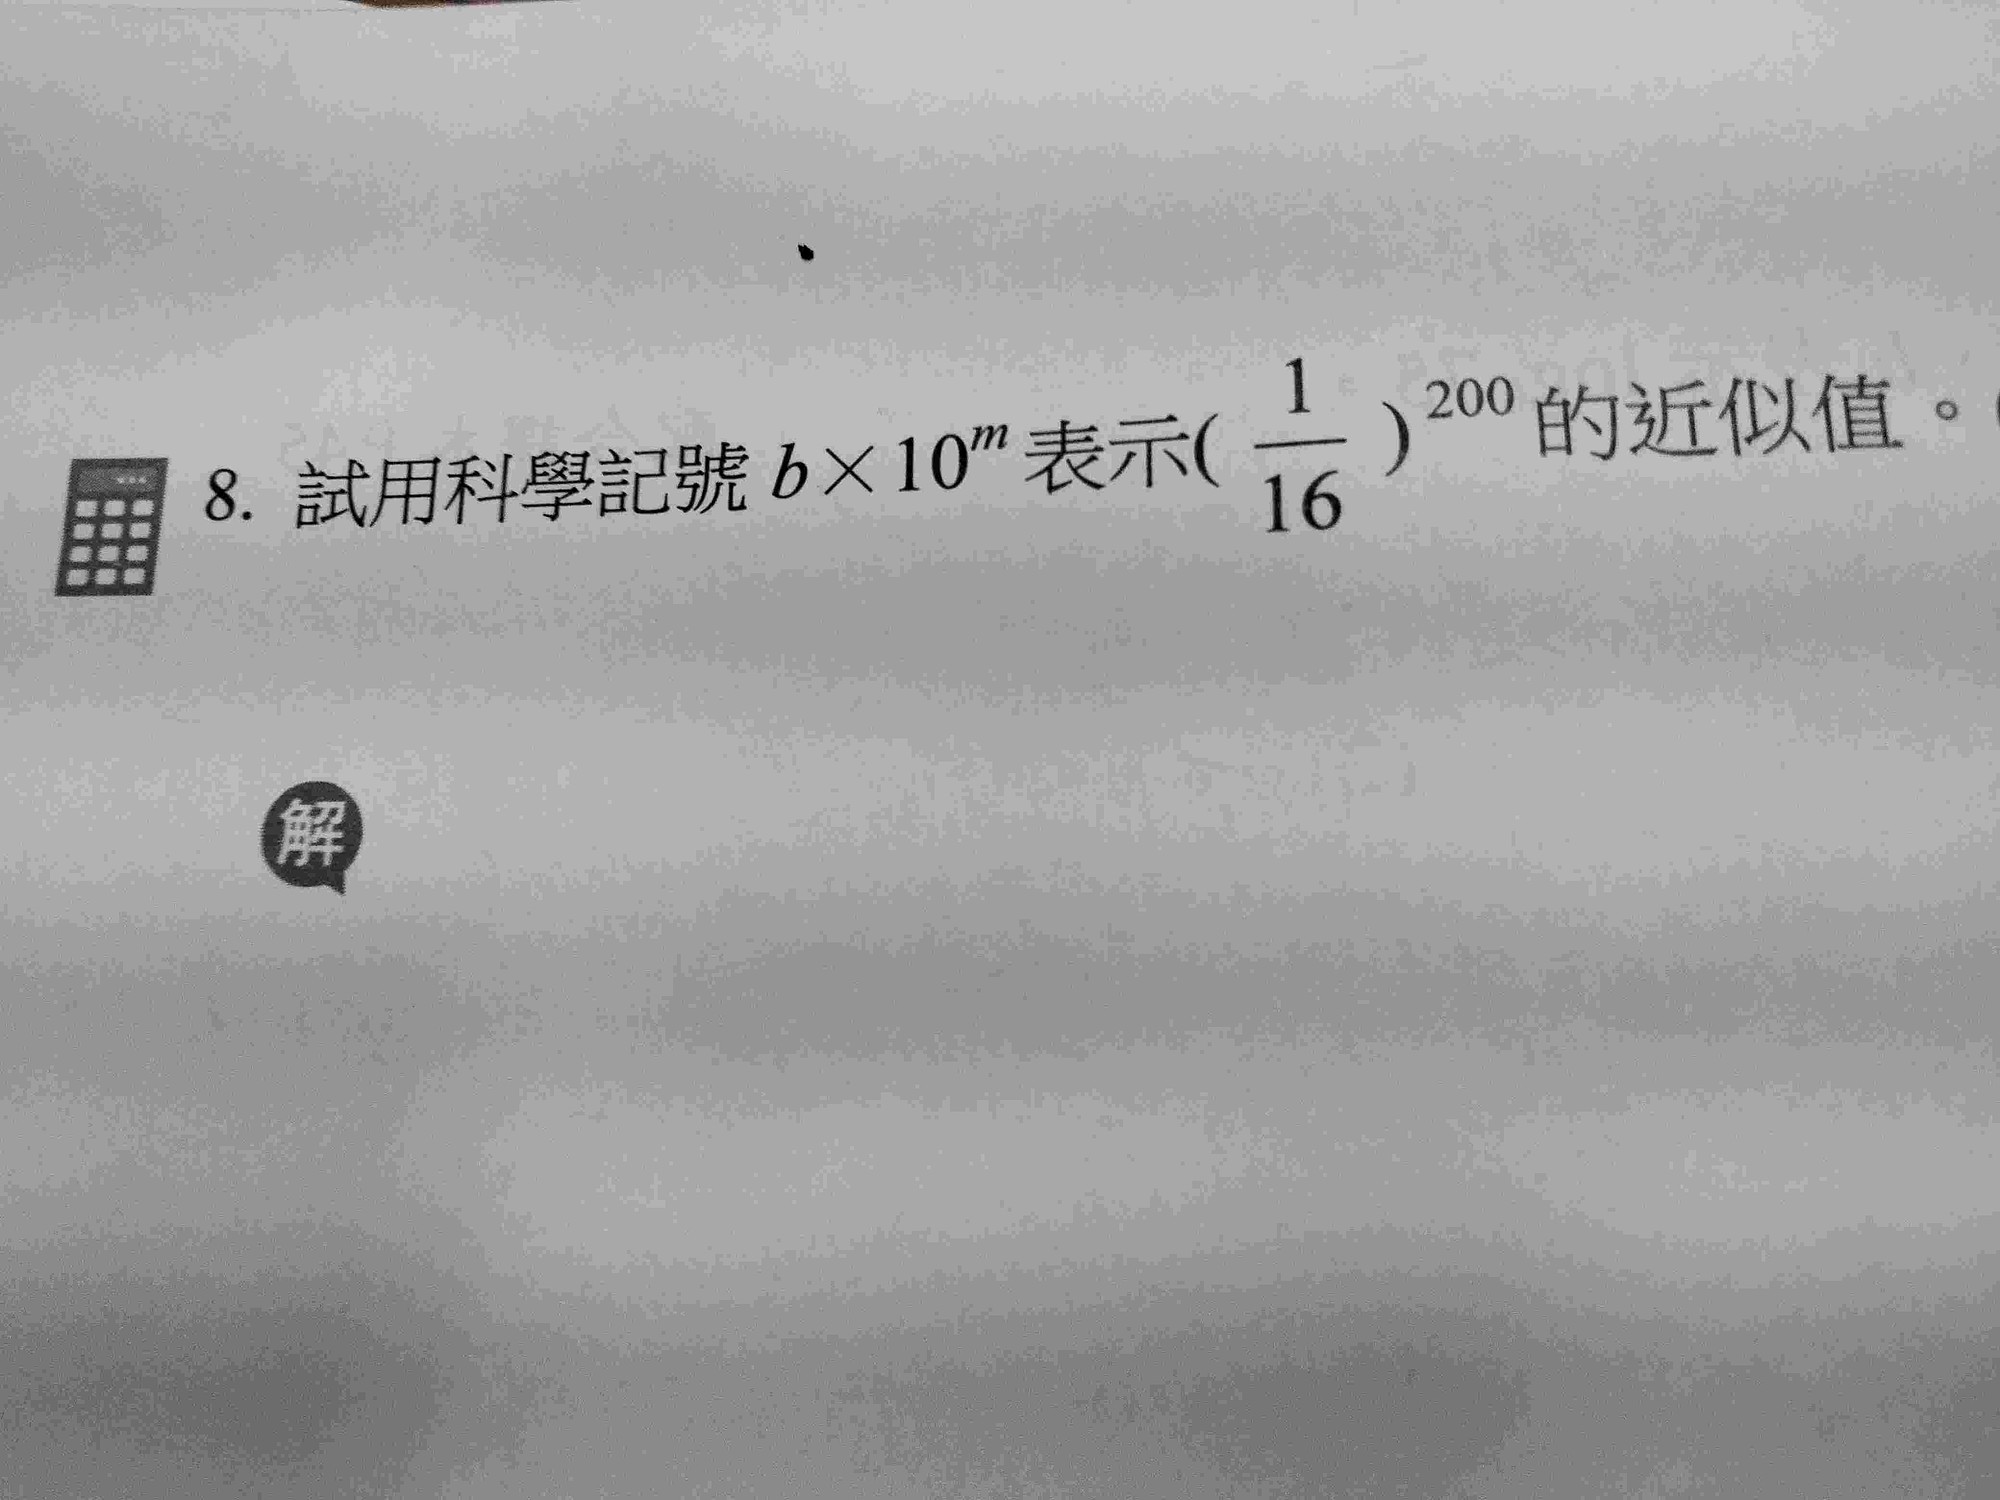 8. 試用科學記號 b×10^m 表示( 1/16 )^200 的近似值。(
解